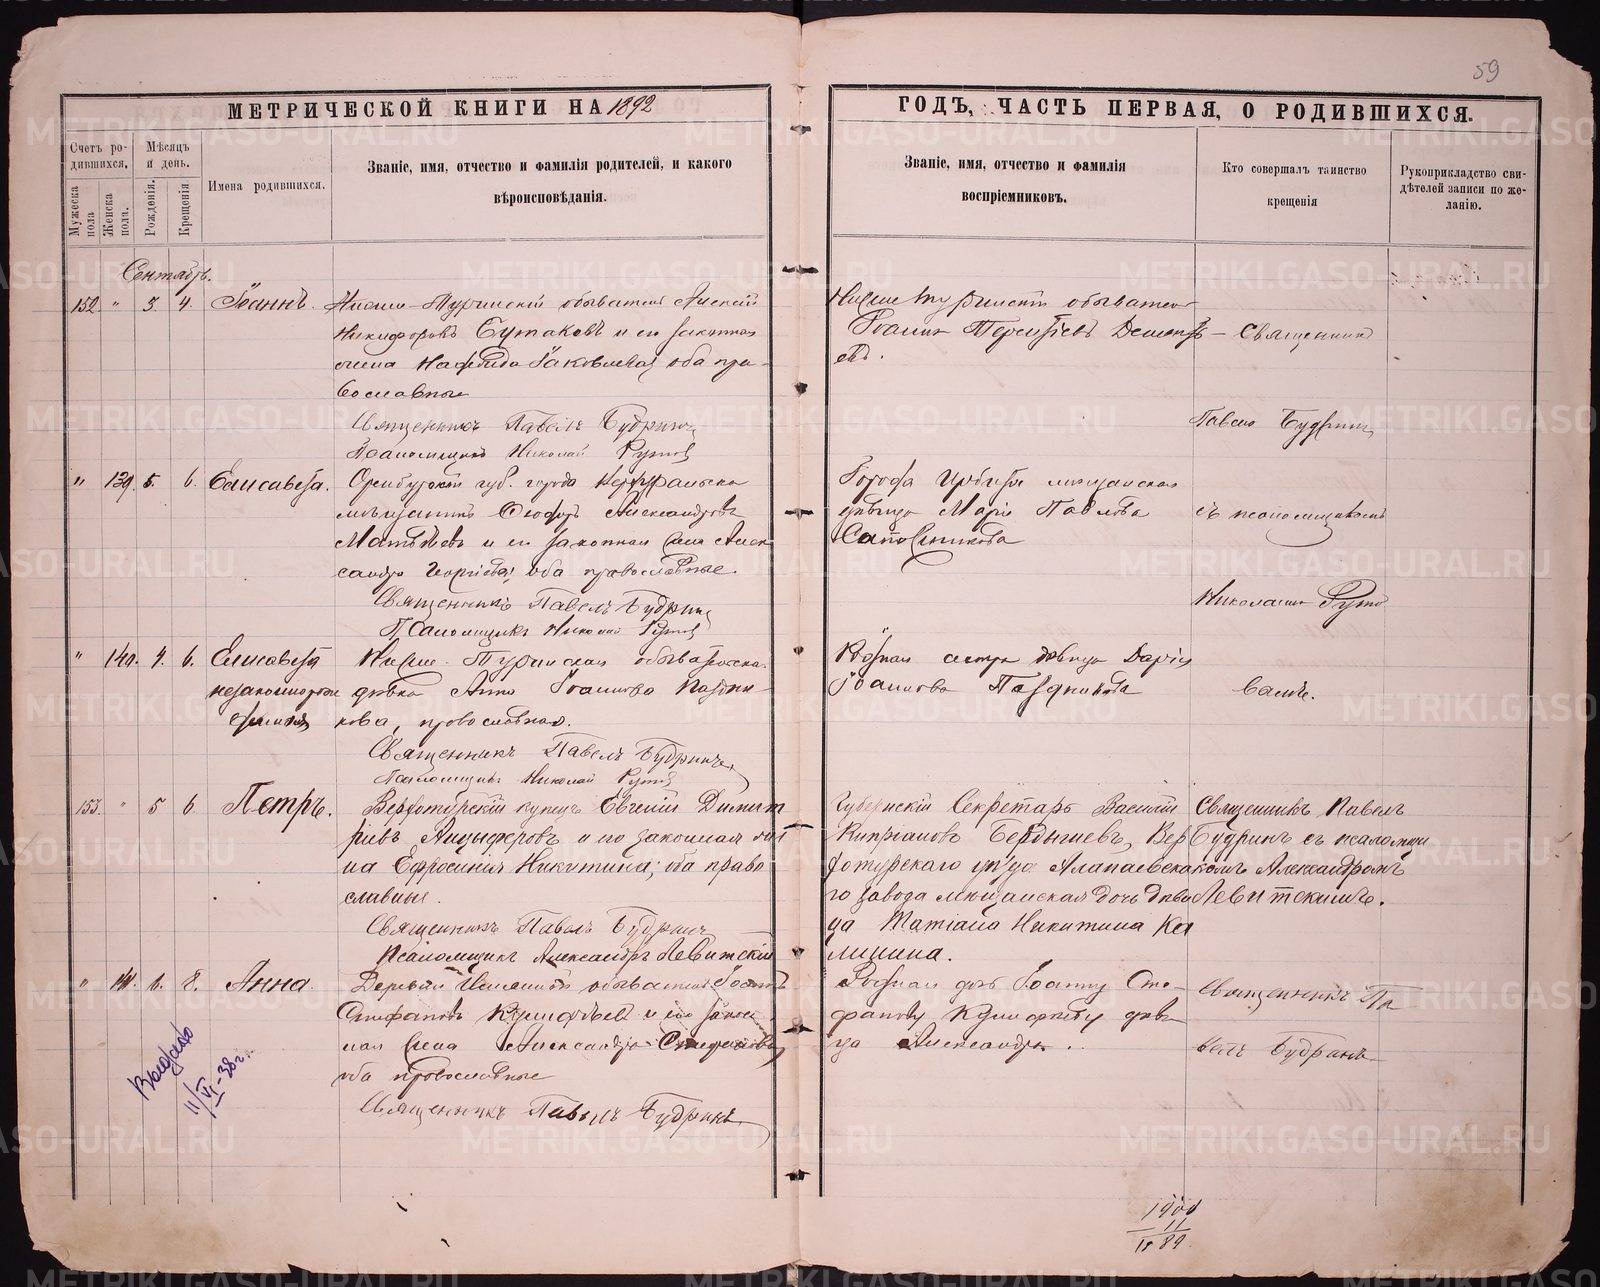 59
МЕТРИЧЕСКОЙ КНИГИ НА 1892
ГОДЪ, ЧАСТЬ ПЕРВАЯ, О РОДИВШИХСЯ.
Счетъ ро-
дившихся.
Мѣсяцъ
и день.
Мужеска
пола
Женска
пола.
Рожденія.
Крещенія
Имена родившихся.
Званіе, имя, отчество и фамилія родителей, и какого
вѣроисповѣданія.
Званіе, имя, отчество и фамилія
воспріемниковъ.
Кто совершалъ таинство
крещенія
Рукоприкладство сви-
дѣтелей записи по же-
ланію.
Сентябрь.
152. " 3. 4. Іоаннъ.
Нижне-Туринскій обыватель Алексѣй
Никифоровъ Бутаковъ и его законная
жена Іаковлева, оба пра-
вославные
Священникъ Павелъ Будринъ
Псаломщикъ Николай
Нижне Туринскій обыватель
Іоаннъ Терентіевъ Демент
евъ.
Священник
Павелъ Будринъ
" 139. 5. 6. Елисавета.
Оренбургской губ. города
мѣщанинъ Ѳеодоръ Александровъ
Матвѣевъ и его законная жена Алек
сандра оба православные.
Священникъ Павелъ Будринъ
Псаломщикъ Николай
Города Ирбита мѣщанская
дѣвица Марія Павлова
Сапожникова
съ псаломщикомъ
Николаемъ
" 140. 4. 6. Елисавета
незаконнорож
Нижне-Туринская обывательска
дѣвка Анна Іоаннова Паздни-
кова, православная.
Священникъ Павелъ Будринъ
Псаломщикъ Николай
Родная сестра дѣвица Дарія
Іоаннова Позdникова
153. " 5 6 Петръ.
Верхотурскій купецъ Евгеній Димит
ріевъ Анциферовъ и его законная же
на Ефросинія Никитина, оба право
славные.
Священникъ Павелъ Будринъ
Псаломщикъ Александръ Левитскій
Губернскій Секретарь Василій
Кипріановъ Бердышевъ, Вер
хотурскаго уѣзда Алапаевска
го завода мѣщанская дочь дѣви
ца Татіана Никитина Ка
линина.
Священникъ Павелъ
Будринъ съ псаломщи
комъ Александромъ
Левитскимъ.
" 141. 6. 8. Анна.
Деревни обыватель Іоаннъ
Стефановъ и его закон
ная жена Александра Стефанова,
оба православные
Священникъ Павелъ Будринъ
Родная дочь Іоанну Сте-
фанову дѣви
ца Александра.
Священникъ Па
велъ Будринъ
Выдано
11/VI-38г.
1900
11
1889
METRIKI.GASO-URAL.RU